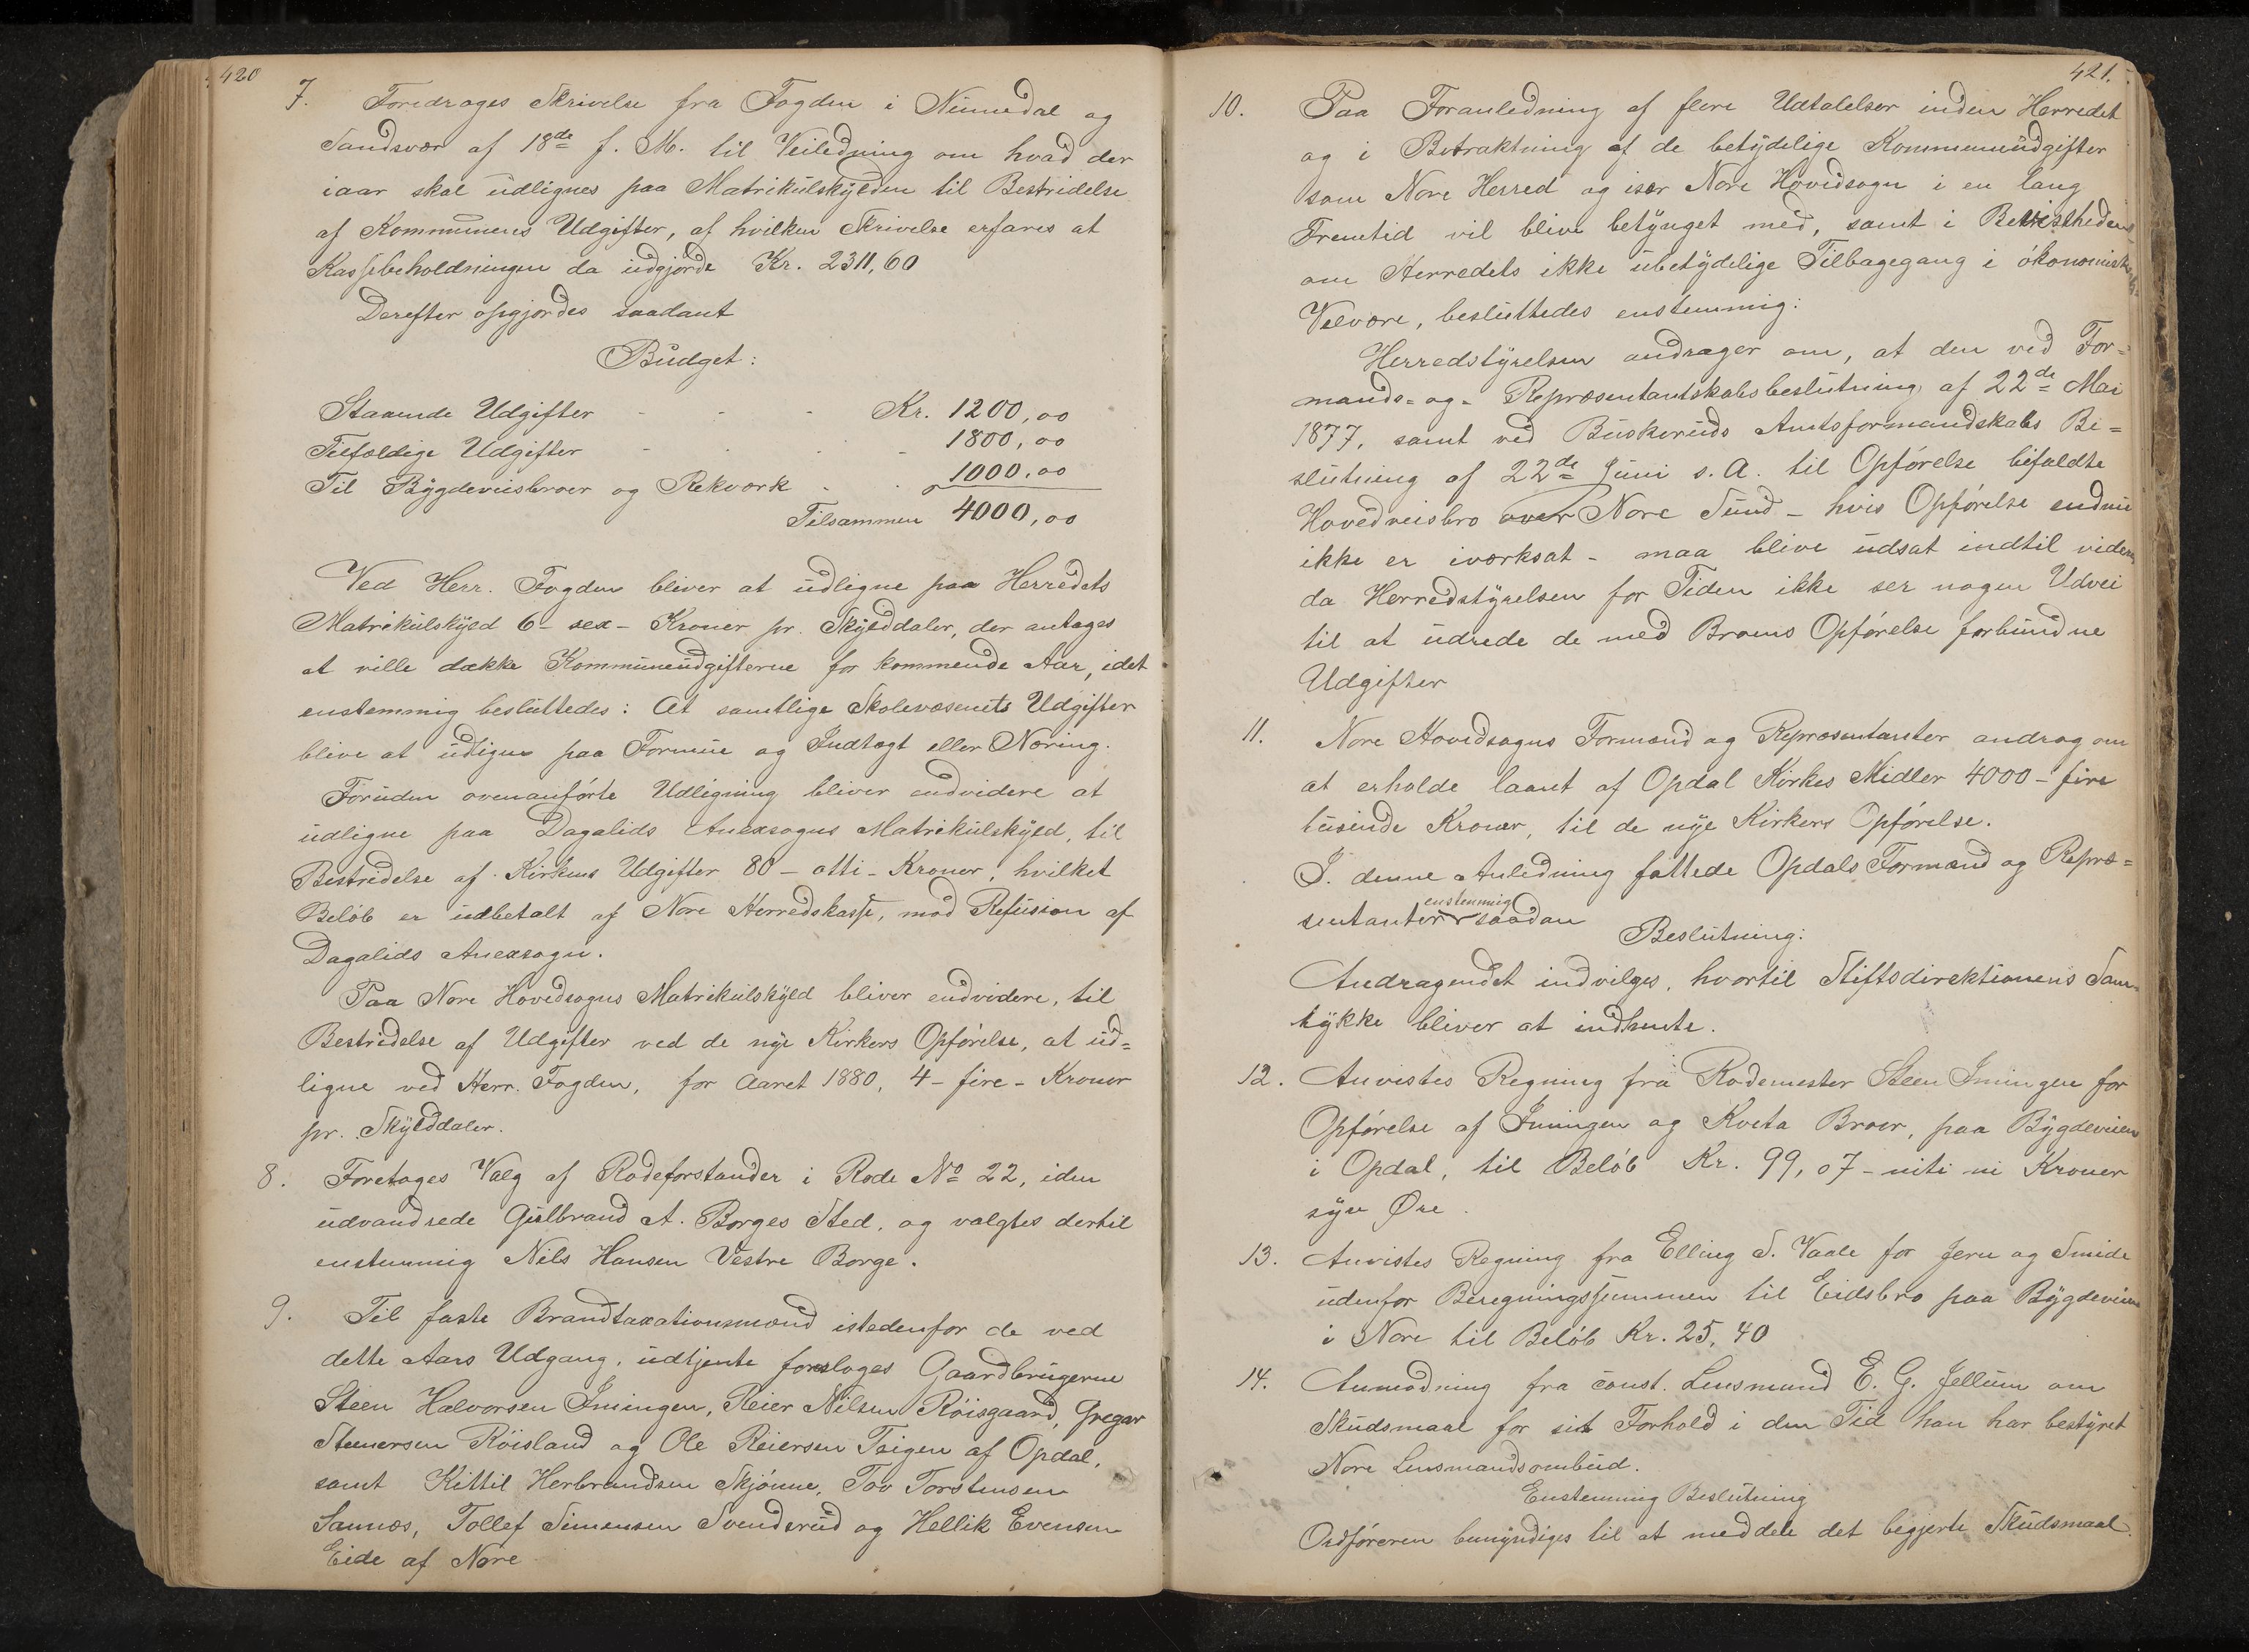 420
7. Foredroges Skrivelse fra Fogden i Numedal og
Sandsvær af 18de f. M. til Veiledning om hvad der
iaar skal udlignes paa Matrikulskylden til Bestridelse
af Kommunens Udgifter, af hvilken Skrivelse erfares at
Kassebeholdningen da udgjorde Kr. 2311,60
Derefter opgjordes saadant
Budget:
Staaende Udgifter - - - Kr. 1200,00
Tilfældige Udgifter - - - 1800,00
Til Bygdeveisbroer og Rekværk - - 1000,00
Tilsammen 4000,00
Ved Herr. Fogden bliver at udligne paa Herredets
Matrikulskyld 6 - sex - Kroner pr. Skylddaler, der antages
at ville dække Kommuneudgifterne for kommende Aar, idet
enstemmig besluttedes: At samtlige Skolevæsenets Udgifter
blive at udligne paa Formue og Indtægt eller Næring.
Foruden ovenanførte Udligning bliver endvidere at
udligne paa Dagalids Anexsogns Matrikulskyld, til
Bestridelse af Kirkens Udgifter 80 - otti - Kroner, hvilket
Beløb er udbetalt af Nore Herredskasse, mod Refusion af
Dagalids Anexsogn.
Paa Nore Hovedsogns Matrikulskyld bliver endvidere, til
Bestridelse af Udgifter ved de nye Kirkers Opførelse, at ud=
ligne ved Herr. Fogden, for Aaret 1880, 4 - fire - Kroner
pr. Skylddaler.
8. Foretoges Valg af Rodeforstander i Rode No 22, iden
udvandrede Gulbrand A. Borges Sted, og valgtes dertil
enstemmig Nils Hansen Vestre Borge.
9. Til faste Brandtaxationsmænd istedenfor de ved
dette Aars Udgang, udtjente foresloges Gaardbrugerne
Steen Halvorsen Imingen, Reier Nilsen Røisgaard, Gregar
Steenersen Røisland og Ole Reiersen Teigen af Opdal,
samt Kittil Herbrandsen Skjønne, Tov Torstensen
Sannæs, Tollef Simensen Svendsrud og Hellik Evensen
Eide af Nore
421.
10. Paa Foranledning af flere Udtalelser inden Herredet
og i Betraktning af de betydelige Kommuneudgifter
som Nore Herred og især Nore Hovedsogn i en lang
Fremtid vil blive betynget med, samt i Bevistheden
om Herredets ikke ubetydelige Tilbagegang i økonomisk
Velvære, besluttedes enstemmig:
Herredstyrelsen andrager om, at den ved For=
mands- og - Repræsentantskabsbeslutning af 22de Mai
1877, samt ved Buskeruds Amtsformandskabs Be=
slutning af 22de Juni s. A. til Opførelse befaldte
Hovedveisbro over Nore Sund - hvis Opførelse endnu
ikke er iværksat - maa blive udsat indtil videre
da Herredstyrelsen for Tiden ikke ser nogen Udvei
til at udrede de med Broens Opførelse forbundne
Udgifter
11. Nore Hovedsogns Formænd og Repræsentanter androg om
at erholde laant af Opdal Kirkes Midler 4000 - fire
tusinde Kroner, til de nye Kirkers Opførelse.
I denne Anledning fattede Opdals Formænd og Repræ=
sentanter enstemmig saadan
Beslutning:
Andragendet indvilges, hvortil Stiftsdirektionens Sam=
tykke bliver at indhente.
12. Anvistes Regning fra Rodemester Steen Imingen for
Opførelse af Imingen og Kveta Broer, paa Bygdeveien
i Opdal, til Beløb Kr. 99,07 - niti ni Kroner
syv Øre.
13. Anvistes Regning fra Elling S. Vaale for Jern og Smide
udenfor Beregningssummen til Eidsbro paa Bygdeveien
i Nore til Beløb Kr. 25,40
14. Anmodning fra const. Lensmand E. G. Jellum om
Skudsmaal for sit Forhold i den Tid han har bestyret
Nore Lensmandsombud.
Enstemmig Beslutning
Ordføreren bemyndiges til at meddele det begjerte Skudsmaal.